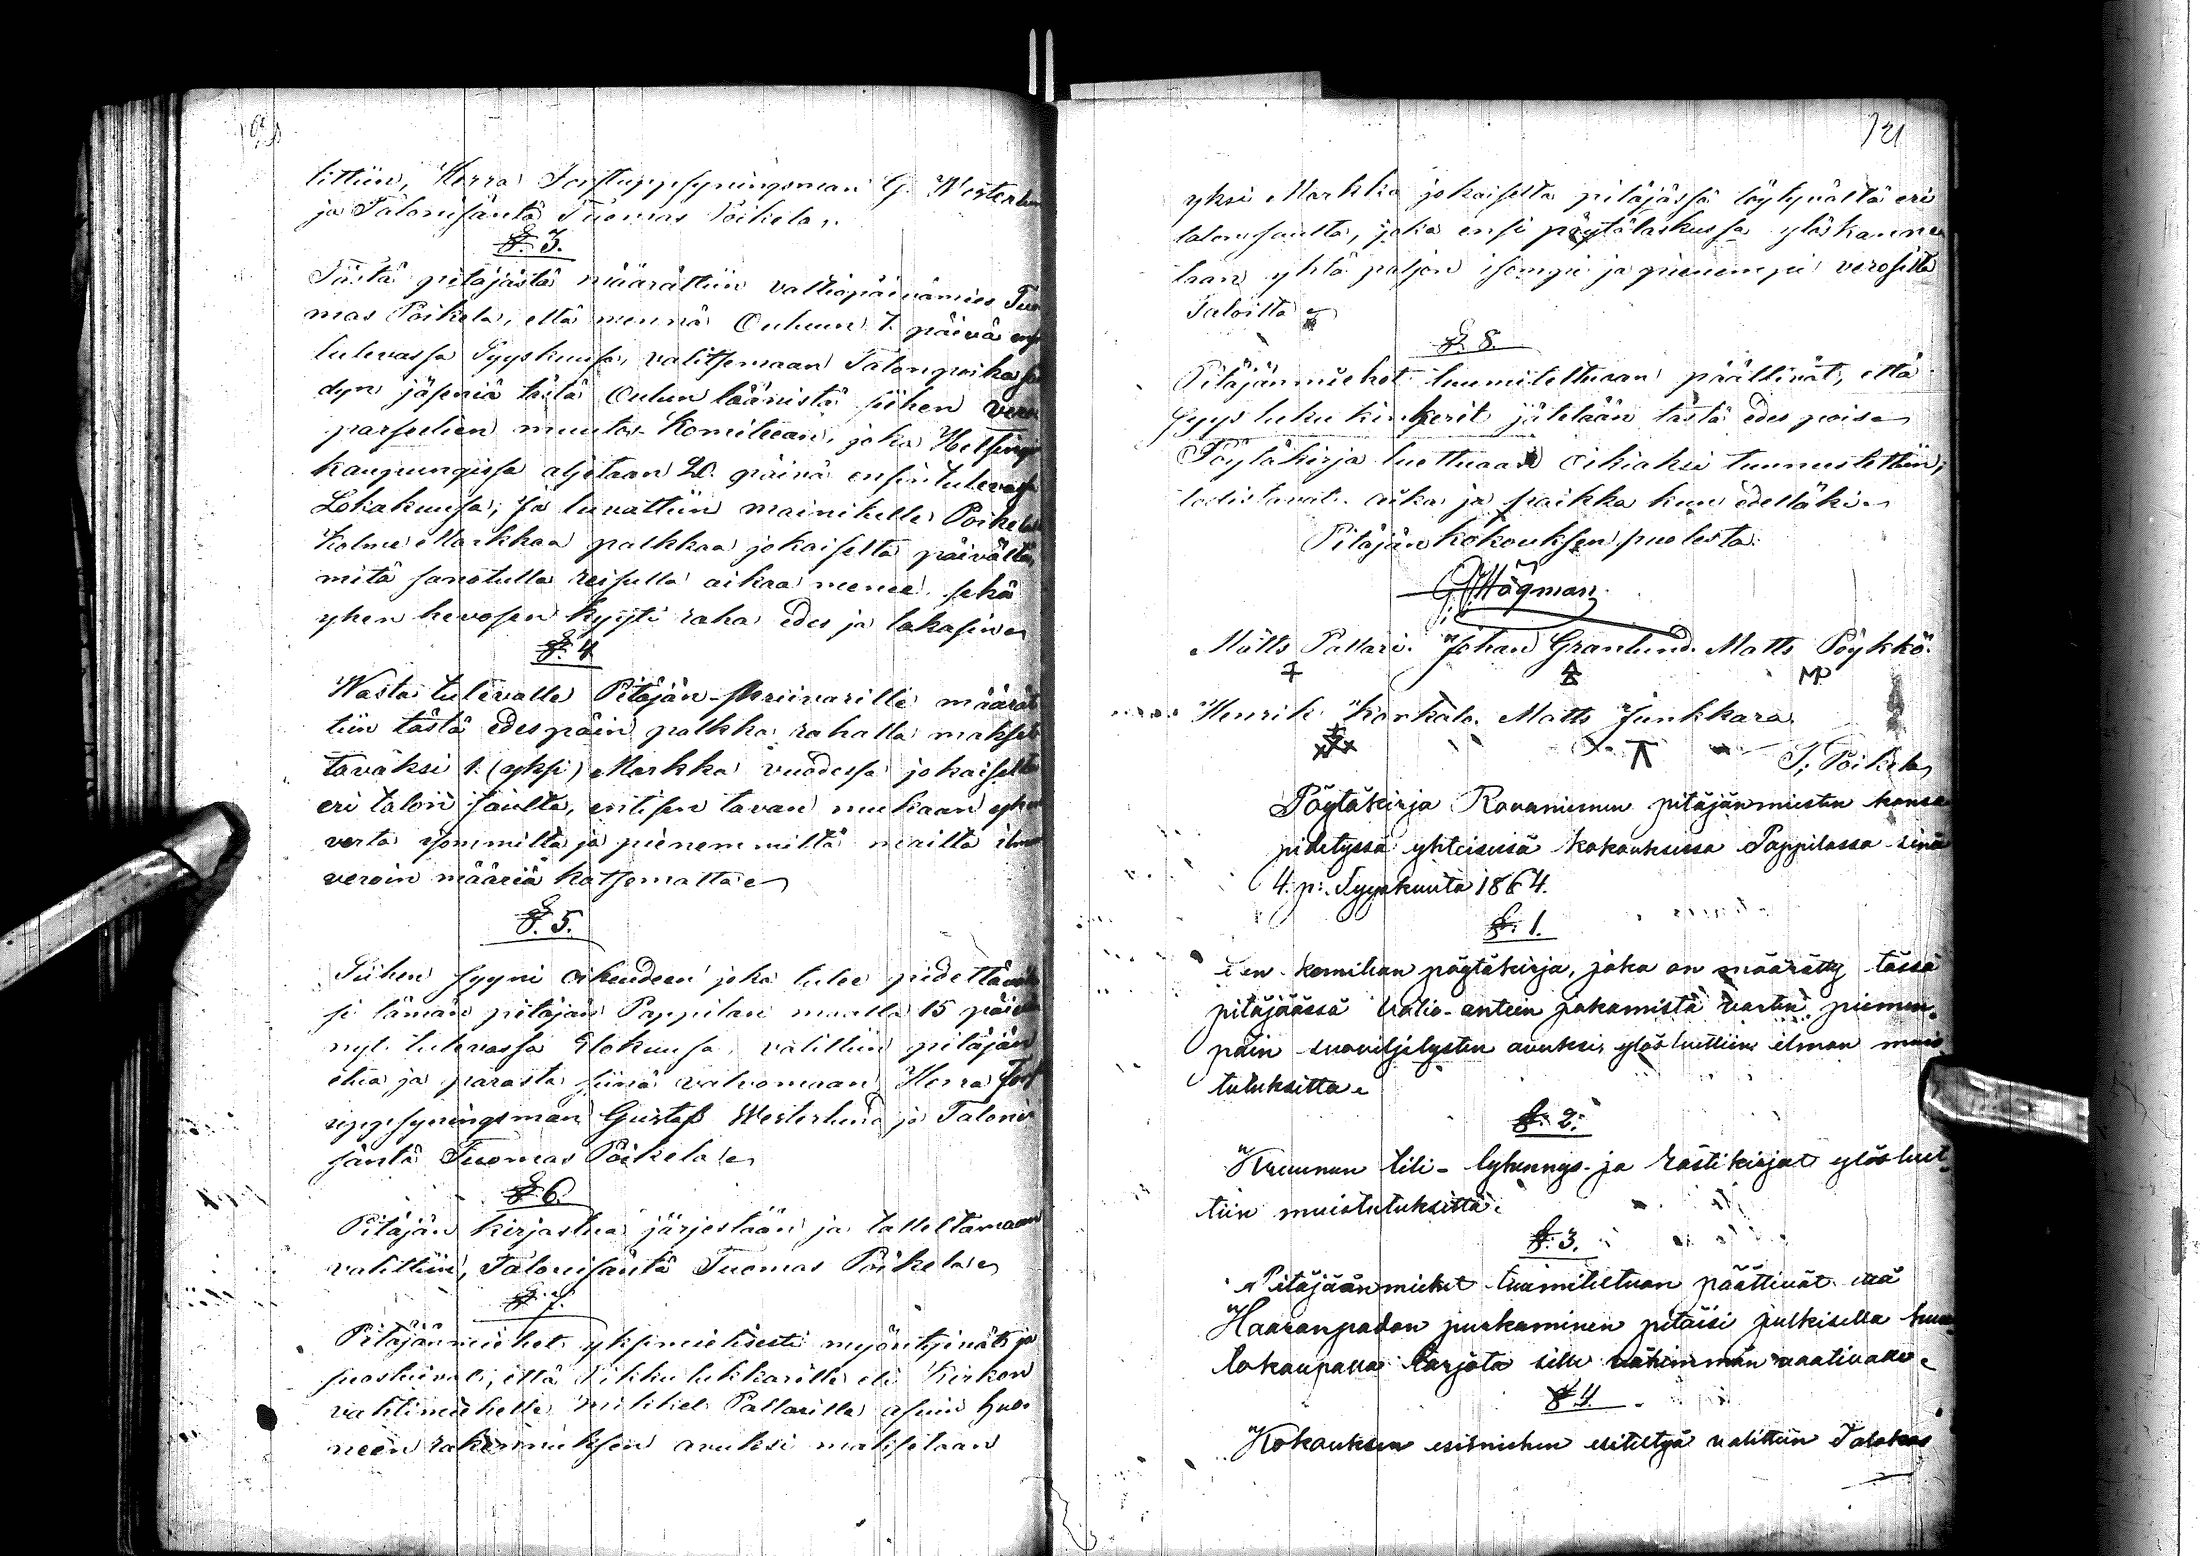 littiin, Herra Forstuppsyningsman G. Westerlun
ja Talonisäntä Tuomas Poikela.
§. 3.
Tästä pitäjästä määrättiin valtiopäivämies Tuo
mas Poikela, että mennä Ouluun 1. päivä ensi
tulevassa Syyskuussa, valitsemaan Talonpoika sää
dyn jäseniä tästä Oulun läänistä siihen vero
parselien muutos-Komiteean, joka Helsingin
kaupungissa aljetaan 20. päivä ensin tulevassa
Lokakuussa; ja luvattiin mainitulle Poikelalle
Kolme Markkaa palkkaa jokaiselta päivältä,
mitä sanotulla reisulla aikaa menee, sekä
yhen hevosen kyyti raha edes ja takasin
§. 4
Wasta tulevalle Pitäjän-skriivarille määrät
tiin tästä edespäin palkka rahalla makset
taväksi 1. (yksi) Markka vuodessa jokaiselta
eri talon savulta, entisen tavan mukaan yhen
verta isommilta ja pienemmiltä mailta ilman
veroin määriä katsomatta
§. 5.
Siihen syyni oikeudeen joka tulee pidettäväk
si tämän pitäjän Pappilan maalla 15 päivä
nyt tulevassa Elokuussa, valittiin pitäjän
etua ja parasta siinä valvomaan Herra Forst
uppsyningsman Gustaf Westerlund ja Taloni
säntä Tuomas Poikela
§ 6.
Pitäjän kirjastua järjestään ja talleltamaan
valittiin, Talonisäntä Tuomas Poikela
§ 7.
Pitäjänmiehet yksimielisesti myöntyivät ja
suostuivat, että Tikku lukkarille eli Kirkon
vahtimiehelle Mikkel Pallarille asuin huo
neen rakennuksen avuksi maksetaan
121
yksi Markka jokaiselta pitäjässä löytyvältä eri
talonsavulta, joka ensi pöytälaskussa ylöskanne
taan yhtä paljon isompi ja pienempi verosista
Taloista
§. 8.
Pitäjänmiehet tuumiteltuvan päättivät, että
syys luku kinkerit jätetään tästä edes pois
Pöytäkirja luettuaan oikiaksi tunnustettiin,
todistavat. aika ja paikka kun edelläki
Pitäjän kokouksen puolesta.
Högman
Matts Pallari. Johan Granlund. Matts Pöykkö.
MP
Henrik Karkalo. Matts Junkkara
T. Poikela
Pöytäkirja Rovaniemen pitäjänmiesten kansa
pidetyssä yhteisessä kokouksessa Pappilassa sinä
4. p: Syyskuuta 1864.
§. 1.
en komitean pöytäkirja, joka on määrätty tässä
pitäjäässä valio-antein jakamista varten pienem
päin suoviljelysten avuksi, ylös luettiin ilman muis
tutuksitta
§. 2.
Kruunun tili- lyhennys- ja Rästikirjat ylösluet
tiin muistutuksitta
§. 3.
Pitäjäänmiehet tuumiteltuan päättivät että
Haaranpadon purkaminen pitäisi julkisella huu
tokaupalla tarjota sille vähimmän vaativalle
§ 4.
Kokouksen esimiehen esiteltyä valittiin Talokas